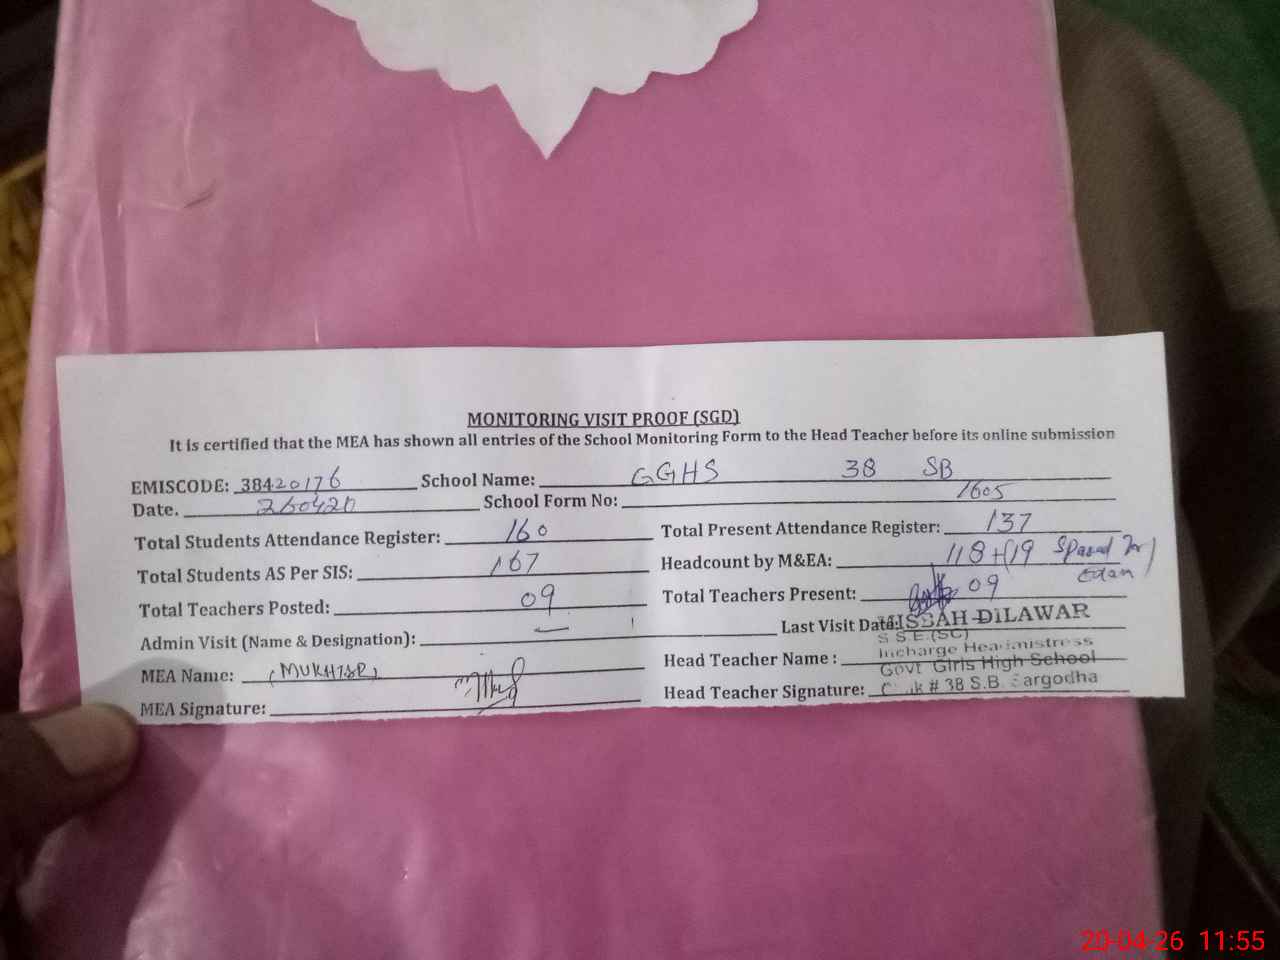 MONITORING VISIT PROOF (SGD)
It is certified that the MEA has shown all entries of the School Monitoring Form to the Head Teacher before its online submission
EMISCODE: 38420176 School Name: GGHS 38 SB
Date. 260420 School Form No: 1605
Total Students Attendance Register: 160 Total Present Attendance Register: 137
Total Students AS Per SIS: 167 Headcount by M&EA: 118+19
Total Teachers Posted: 09 Total Teachers Present: 09
Admin Visit (Name & Designation): — Last Visit Date:
MEA Name: (MUKHTAR) Head Teacher Name :
MEA Signature: Head Teacher Signature:
MISBAH DILAWAR
S S.E.(SC)
Incharge Headmistress
Govt Girls High School
# 38 S.B. Sargodha
20-04-26 11:55